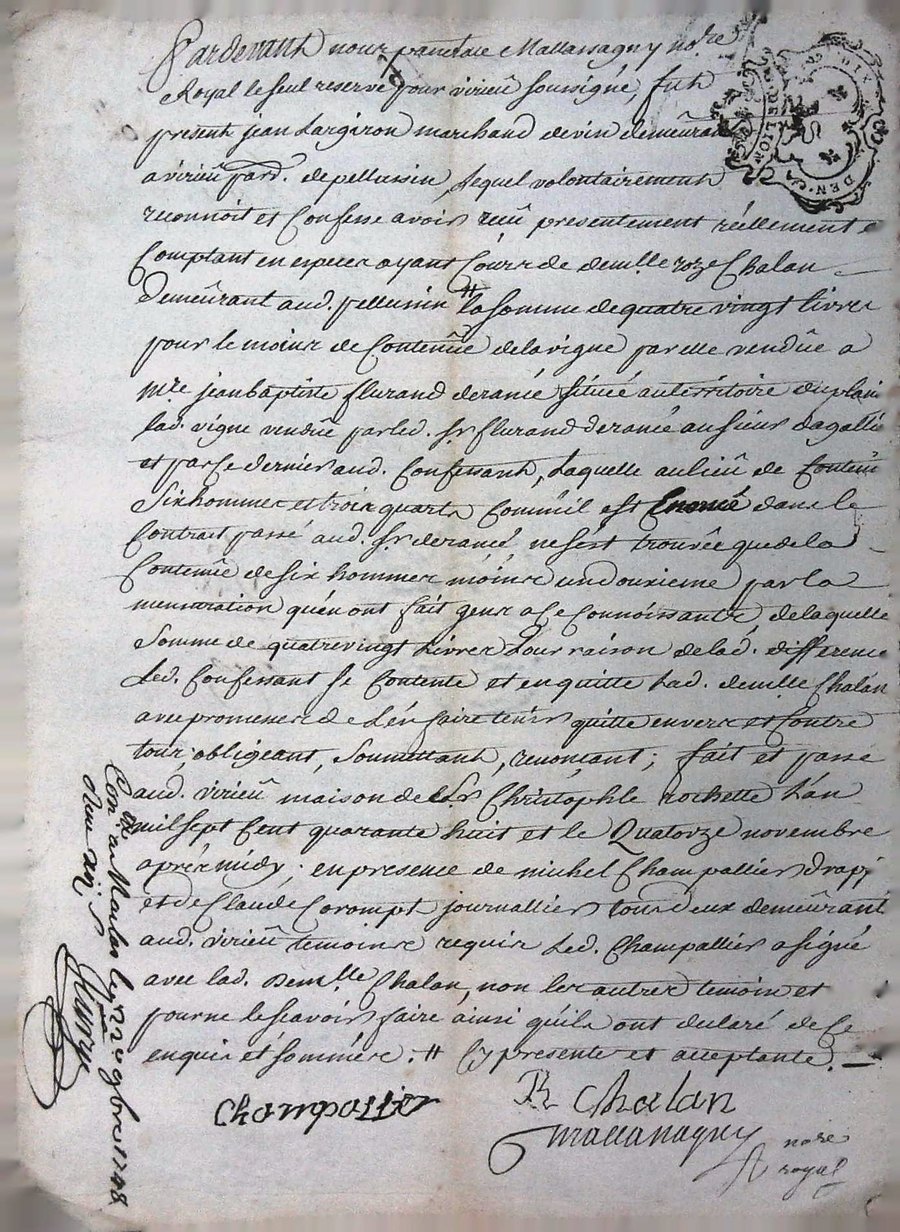 Pardevant nous pancrace Mallassagny no.re
Royal le seul reservé pour virieu soussigné, fut
present jean Largiron marchand de vin demeurant
a virieu par.d de pellussin, Lequel volontairement
reconnoit et Confesse avoir reçû presentement réellement e
Comptant en especes ayant Cours de demlle roze Chalan
Demeûrant aud. pellussin # la somme de quatre vingt livres
pour le moins de Contenûe de la vigne par elle vendûe a
mre jean baptiste flurand deranié située au territoire du plain
lad. vigne vendûe par led. sr flurand deranié au sieur dagallie
et par Ce dernier aud. Confessant, Laquelle au lieû de Contenir
Six hommes et trois quarts Comm'il est Enoncé dans le
Contrait passé aud. sr deranié ne s'est trouvée que de la
Contenûe de six hommes moins un douxieme par la
mensuration qu'en ont fait gens a Ce Connoissants, de laquelle
Somme de quatre vingt Livres pour raison de lad. différence
Led. Confessant se Contente et en quitte Lad. demlle Chalan
avec promesses de L'en faire tenir quitte envers et Contre
tous, obligeant, soumettant, renonçant; fait et passé
aud. virieû maison de sr Christophle rochette L'an
mil sept Cent quarante huit et le Quatorze novembre
après midy; en presence de michel Champallier drap.
et de Claude Corompt journallier tous deux demeûrant
aud. virieû temoins requis Led. Champallier a signé
avec lad. Demlle Chalan, non les autres temoin et
pour ne le scavoir faire ainsi qu'ils ont declaré de Ce
enquis et sommés. # Cy presente et acceptante.
Champallier
R Chalan
Mallassagny
nore
royal
Con.lé a Maclas le 22e 9bre 1748
GEN.
DE LION
DEN.
DIX